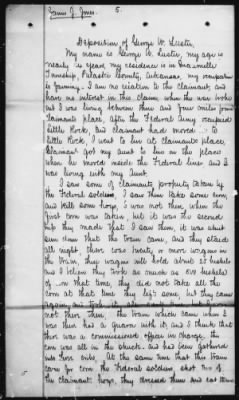 James J. Jones. 5.
Deposition of George W. Lustin
My name is George W. Lustin, my age is
nearly years, my residence is in
Township, Pulaski County, Arkansas, my occupation
is farming. I am no relation to the claimant, and
have no interest in this claim, when the war broke
out I was living between three and four miles from
claimants place, after the Federal Army occupied
Little Rock, and claimant had moved to
Little Rock, I went to live at claimants place,
claimant got my aunt to live in the place
when he moved inside the Federal lines and I
was living with my Aunt.
I saw some of claimants property taken by
the Federal soldiers, I saw them take some corn,
and kill some hogs, I was not there when the
first corn was taken, but it was the second
trip they made that I saw them, it was about
sun down that the train came, and they staid
all night, there was twenty or more wagons in
the train, they wagons will hold about 25 bushels
and I believe they took as much as 600 bushels
of corn that time, they did not take all the
corn at that time they left some but they came
again, and took it all
not there then. The train which came when I
was there had a Guard with it, and I think that
there was a commissioned officer in charge, the
corn was all in the shuck and had been gathered
into two cribs. At the same time that this train
came for corn the Federal soldiers shot two of
the claimants hogs, they dressed them and eat them